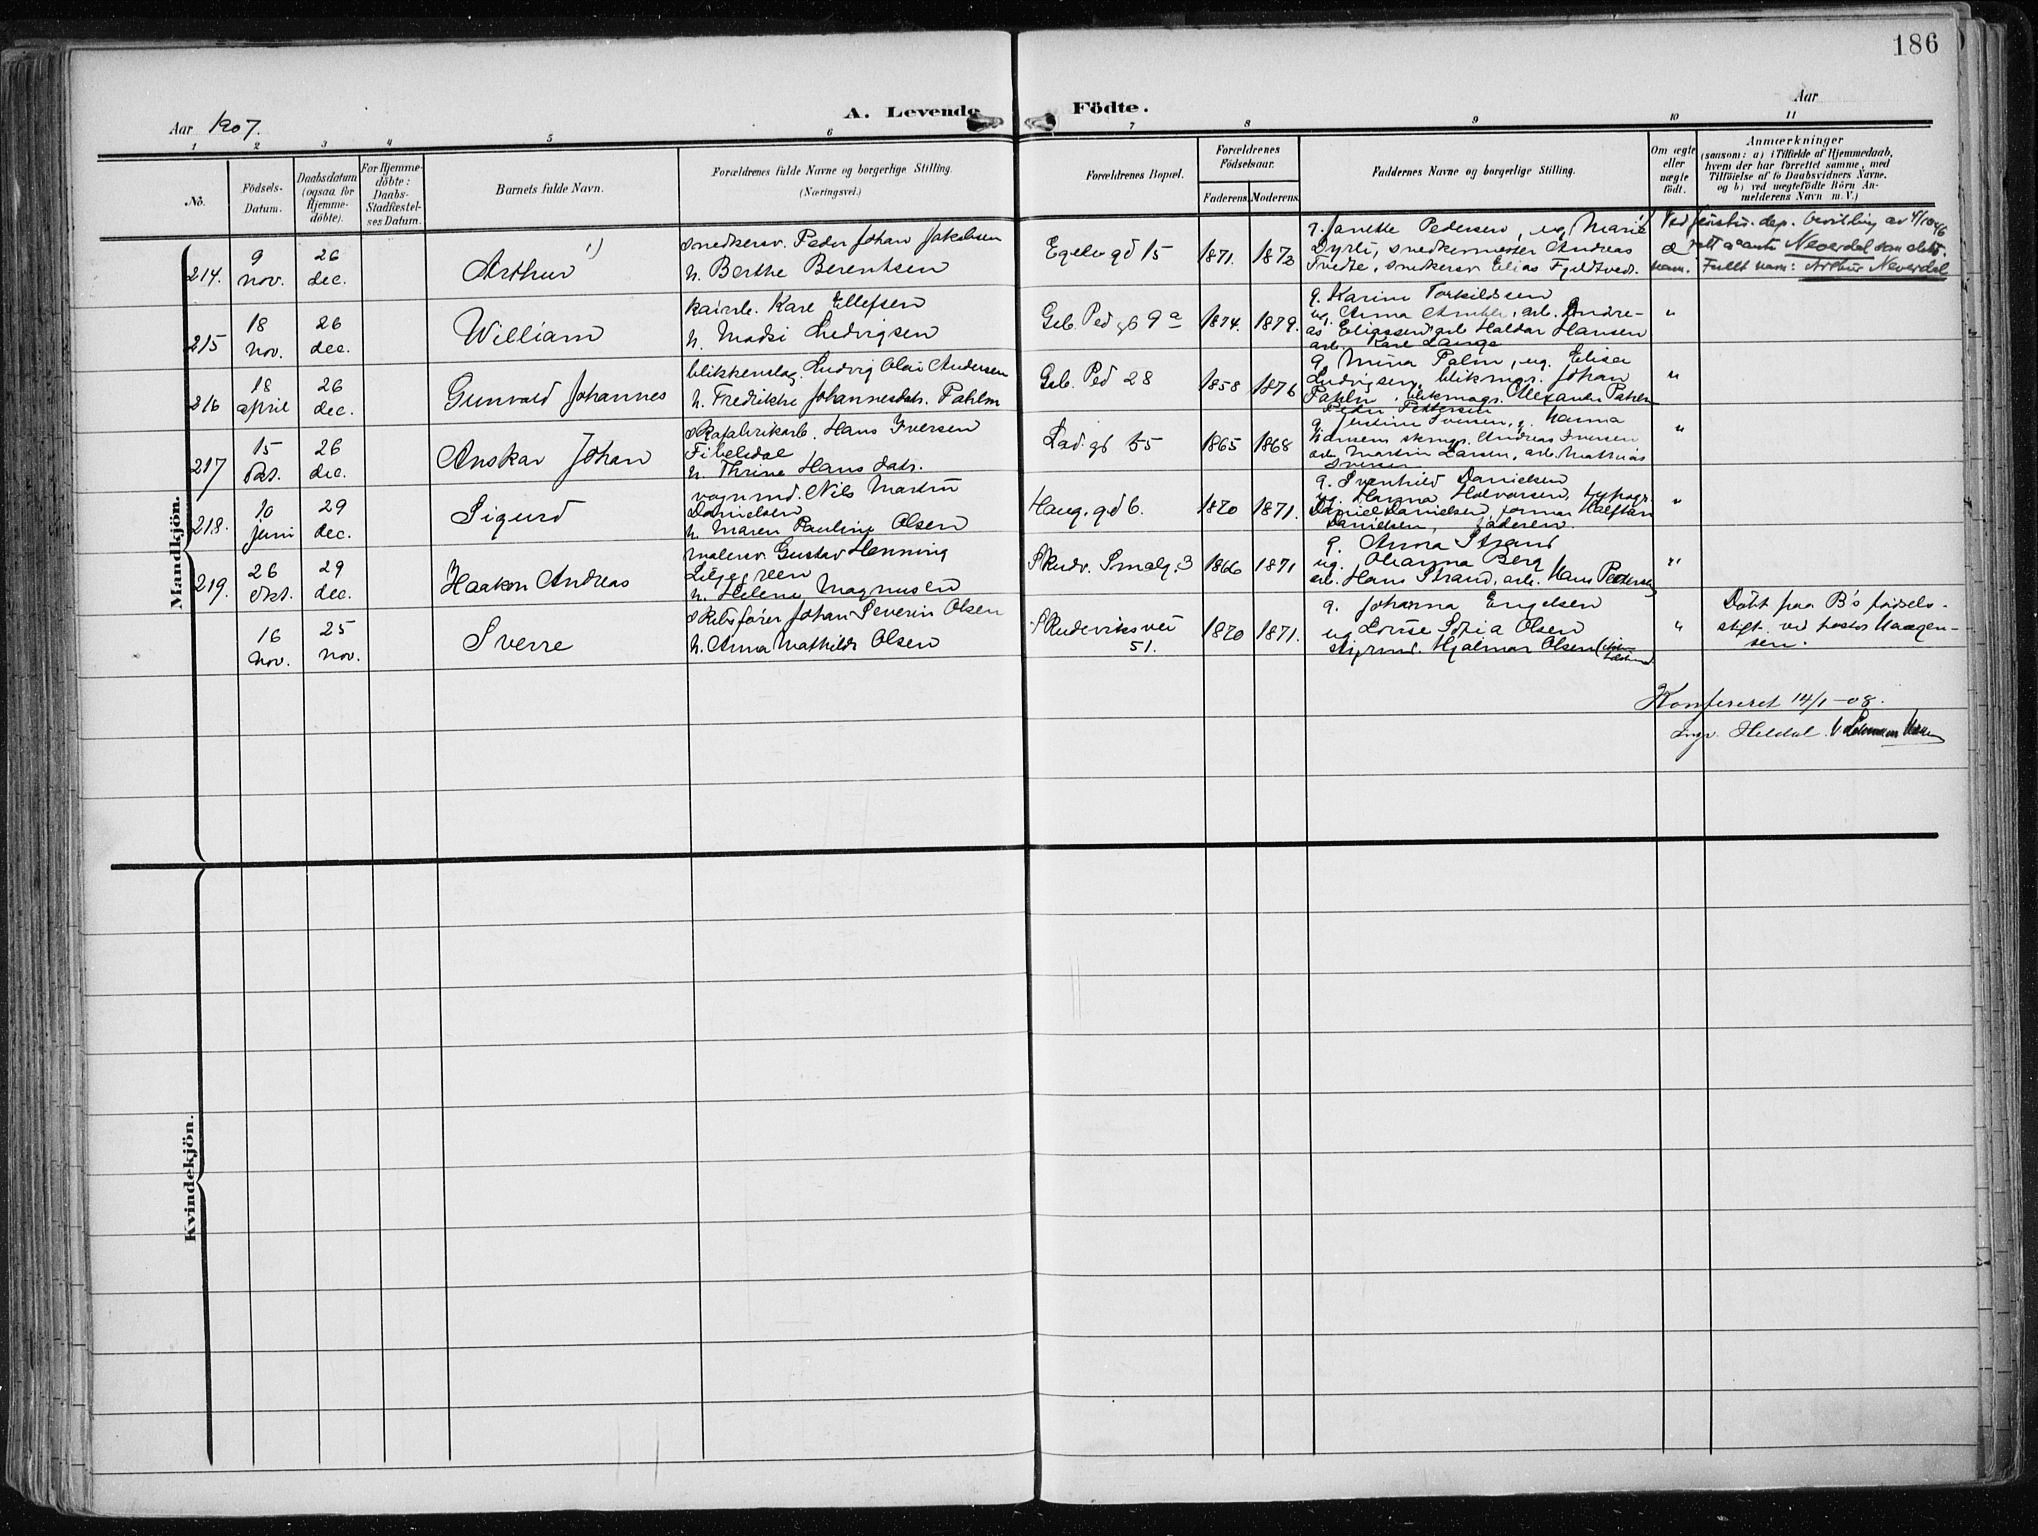 186
A. Levende Födte.
Aar 1907.
Aar
1 2 3 4 5 6 7 8 9 10 11
No.
Födsels-
Datum.
Daabsdatum
(ogsaa for
Hjemme-
döbte).
For Hjemme-
döbte:
Daabs-
Stadfæstel-
ses Datum.
Barnets fulde Navn.
Forældrenes fulde Navne og borgerlige Stilling.
(Næringsvei.)
Forældrenes Bopæl.
Forældrenes
Födselsaar.
Faderens. Moderens.
Faddernes Navne og borgerlige Stilling.
Om ægte
eller
uægte
födt.
Anmærkninger
(saasom: a) i Tilfælde af Hjemmedaab,
hvem der har forrettet samme, med
Tilföielse af to Daabsvidners Navne.
og b) ved uægtefödte Börn An-
melderens Navn m. V.)
Mandkjön.
214.
9
nov.
26
dec.
Arthur 1)
snedkersv. Peder Johan Jakobsen
h. Berthe Berentsen
Engen gd 15
1871. 1873
g. Janette Pedersen, ug. Marie
Dyrli, snedkermester Andreas
Tvedte, snedkersv Elias Fjeldtvedt.
1) Ved justis. dep. bevilling av 4/10 46
rett a anta Neverdal som slekts-
nam. Fullt nam: Arthur Neverdal
215
18
nov.
26
dec.
William
Karl Ellefsen
h. Madsi Ludvigsen
Geb. Ped gd 9 a
1874. 1879.
g. Karine Torkildsen
ug. Anna arb. Andre-
as Eliassen, arb Haldor Hansen
arb. Karl Lange
"
216
18
april
26
dec.
Gunvald Johannes
blikkenslag. Ludvig Olai Andersen
h. Fredrikke Johannesdatr. Pahlm
Geb. Ped 28
1858 1876
g. Mina Palm, ug. Elisa
Ludvigsen, blikmag. Johan
Pahlm, blikmag. Alexander Pahlm
Peder Pettersen
"
217
15
okt.
26
dec.
Anskar Johan
skofabrikarb. Hans Iversen
Tibelsdal
h. Thrine Hansdatr.
Lad. gd 55
1865 1868
g. Justine Iversen, g. Hanna
Hansen, skmgs. Andreas Iversen
arb. Martin Larsen, arb. Mathias
Iversen
"
218.
10
juni
29
dec.
Sigurd
vognmd. Nils Martin
Danielsen
h. Maren Pauline Olsen
Haug. gd 6.
1870 1871.
g. Svenhild Danielsen
ug. Hanna Halvorsen, typogr.
Daniel Danielsen, former Halfdan
Danielsen, faderen.
"
219.
26
okt.
29
dec.
Haakon Andreas
malersv. Gustav Henning
Liljegreen
h. Helene Magnusen
Skudv. Smalg. 3
1866 1871
g. Anna Strand
ug. Johanna Berg
arb. Hans Strand, arb. Hans Pedersen
"
16
nov.
25
nov.
Sverre
skibsfører Johan Severin Olsen
h. Anna Mathilde Olsen
Skudeviksvei
51.
1870 1871.
g. Johanna Engelsen
ug. Louise Sofia Olsen
styrmd. Hjalmar Olsen
"
Døbt paa B's fødsels-
stift. ved pastor Haagen-
sen.
Konfereret 14/1-08.
Ingv. Heldal.
Kvindekjön.